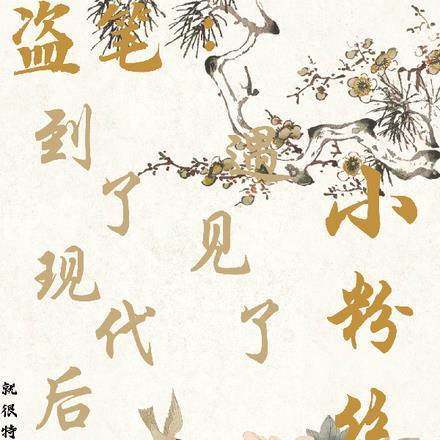 盗笔：
到了
现代
后
遇见了
小粉
就很特